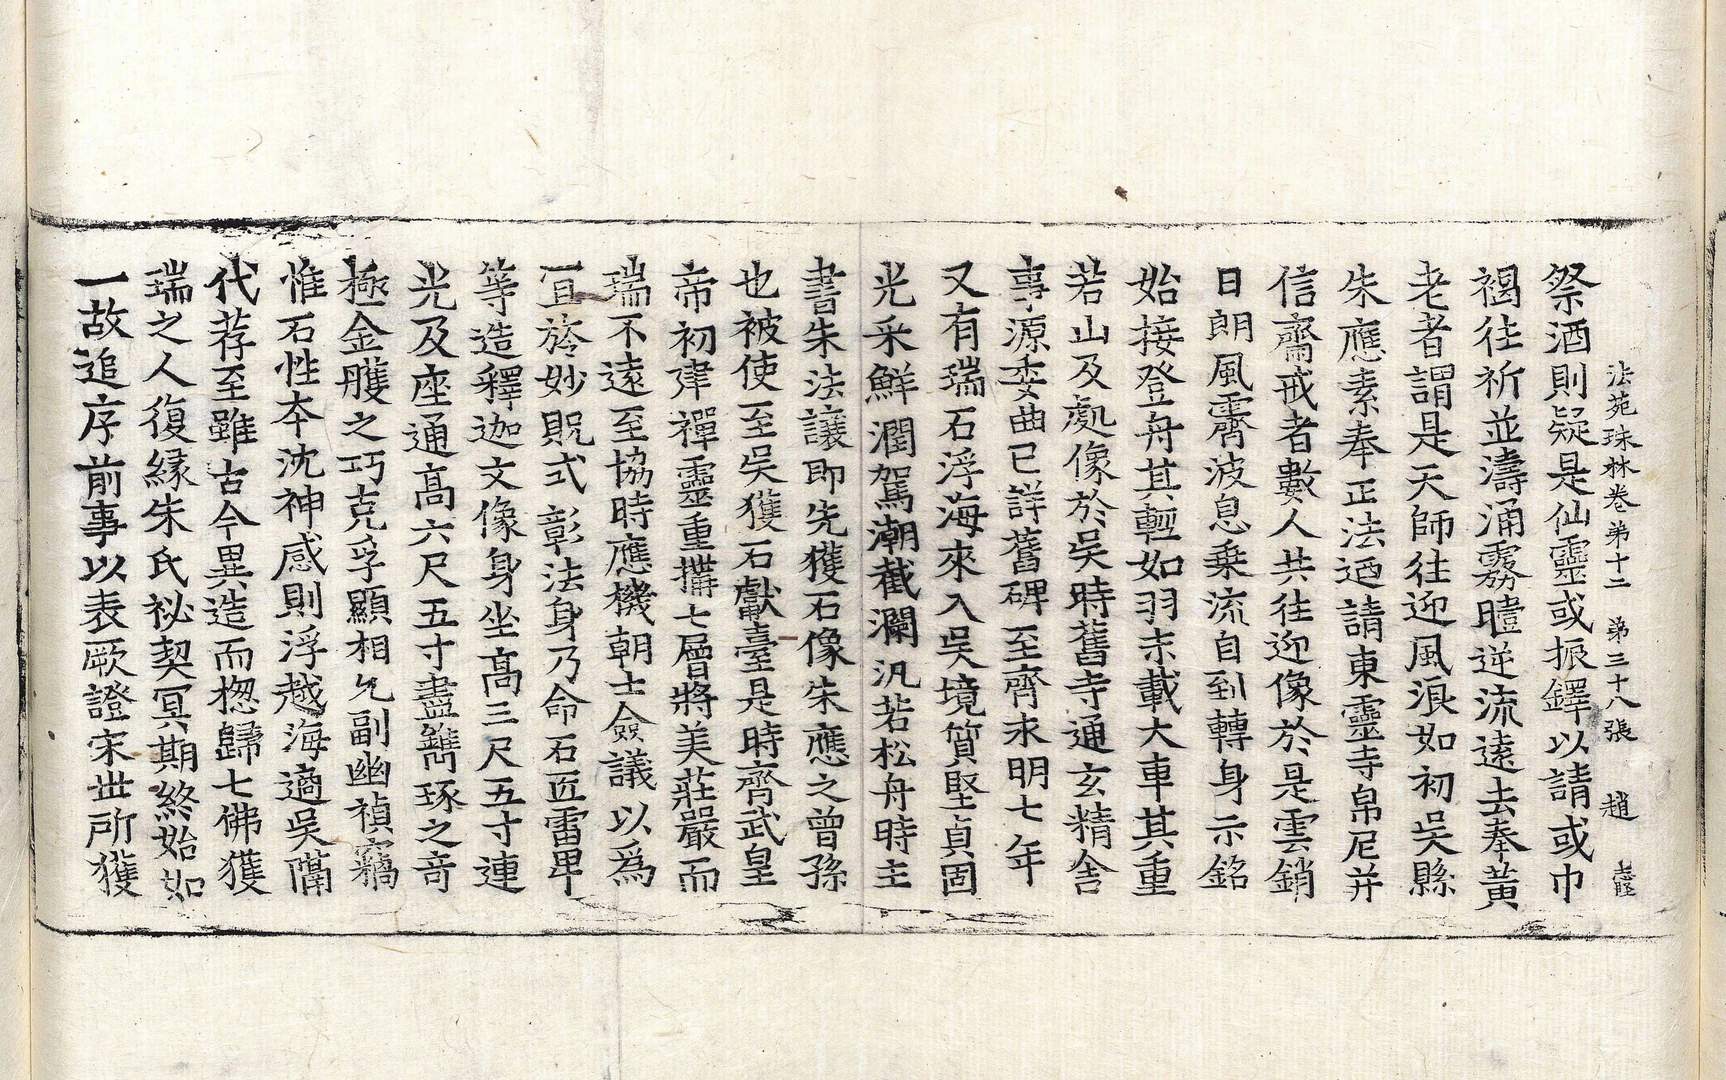 法苑珠林卷第十二　第三十八張　趙
祭酒則疑是仙靈或振鐸以請或巾
褐往祈並濤涌霧曀逆流遠去奉黃
老者謂是天師往迎風浪如初吳縣
朱應素奉正法迺請東靈寺帛尼并
信齋戒者數人共往迎像於是雲銷
日朗風霽波息乗流自到轉身示銘
始接登舟其輕如羽未載大車其重
若山及處像於吳時舊寺通玄精舍
事源委曲已詳舊碑至齊永明七年
又有瑞石浮海來入吳境質堅貞固
光采鮮潤駕潮截瀾汎若松舟時主
書朱法讓即先獲石像朱應之曾孫
也被使至吳獲石獻臺是時齊武皇
帝初建禪靈重搆七層將美莊嚴而
瑞不遠至協時應機朝士僉議以爲
宜於妙貺式彰法身乃命石匠雷卑
等造釋迦文像身坐高三尺五寸連
光及座通高六尺五寸盡鐫琢之奇
極金雘之巧克孚顯相允副幽禎竊
惟石性本沈神感則浮越海適吳隔
代荐至雖古今異造而揔歸七佛獲
瑞之人復緣朱氏祕契冥期終始如
一故追序前事以表厥證宋世所獲